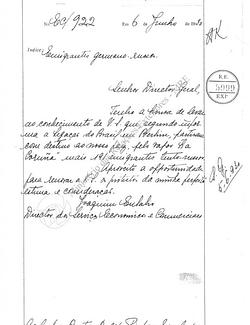 No EC/922 Em 6 de Junho de 19
Indice: Emigrantes germano-russos.
Senhor Director Geral,
Tenho a honra de levar
ao conhecimento de V. S. que, segundo informa
a Legação do Brasil em Berlim, partiram
com destino ao nosso paiz, pelo vapor La
Coruña mais 191 emigrantes teuto-russos.
Aproveito a opportunidade
para renovar a V. S. os protestos da minha perfeita
estima e consideração.
Joaquim Eulalio
Director dos Serviços Economicos e Commerciaes
R.E.
5999
EXP.